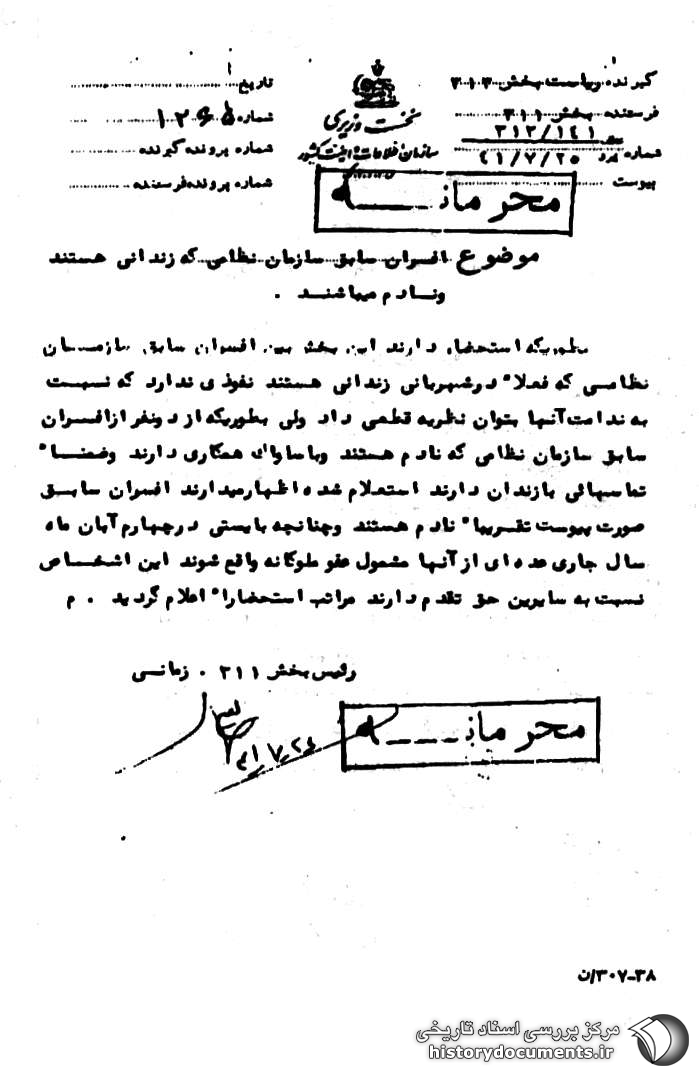 گیرنده ریاست بخش ۳۱۳
تاریخ
نخست وزیری
فرستنده بخش ۳۱۱
شماره ۱۲۶۵
سازمان اطلاعات و امنیت کشور
۳۱۲/۱٤۱
شماره
٤۱/۷/۲۵
شماره پرونده گیرنده
پیوست
شماره پرونده فرستنده
محرمانه
موضوع افسران سابق سازمان نظامی که زندانی هستند
و نادم میباشند .
بطوریکه استحضار دارند این بخش بین افسران سابق سازمان
نظامی که فعلا" در شهربانی زندانی هستند نفوذی ندارد که نسبت
به ندامت آنها بتوان نظریه قطعی داد ولی بطوریکه از دونفر از افسران
سابق سازمان نظامی که نادم هستند و با ساواک همکاری دارند وضمنا"
تماسهائی با زندان دارند استعلام شده اظهار میدارند افسران سابق
صورت پیوست تقریبا" نادم هستند وچنانچه بایستی در چهارم آبان ماه
سال جاری عده ای از آنها مشمول عفو ملوکانه واقع شوند این اشخاص
نسبت به سایرین حق تقدم دارند مراتب استحضارا" اعلام گردید . م
رئیس بخش ۳۱۱ . زمانی
محرمانه
۳۰۷-۳۸/ن
مرکز بررسی اسناد تاریخی
historydocuments.ir